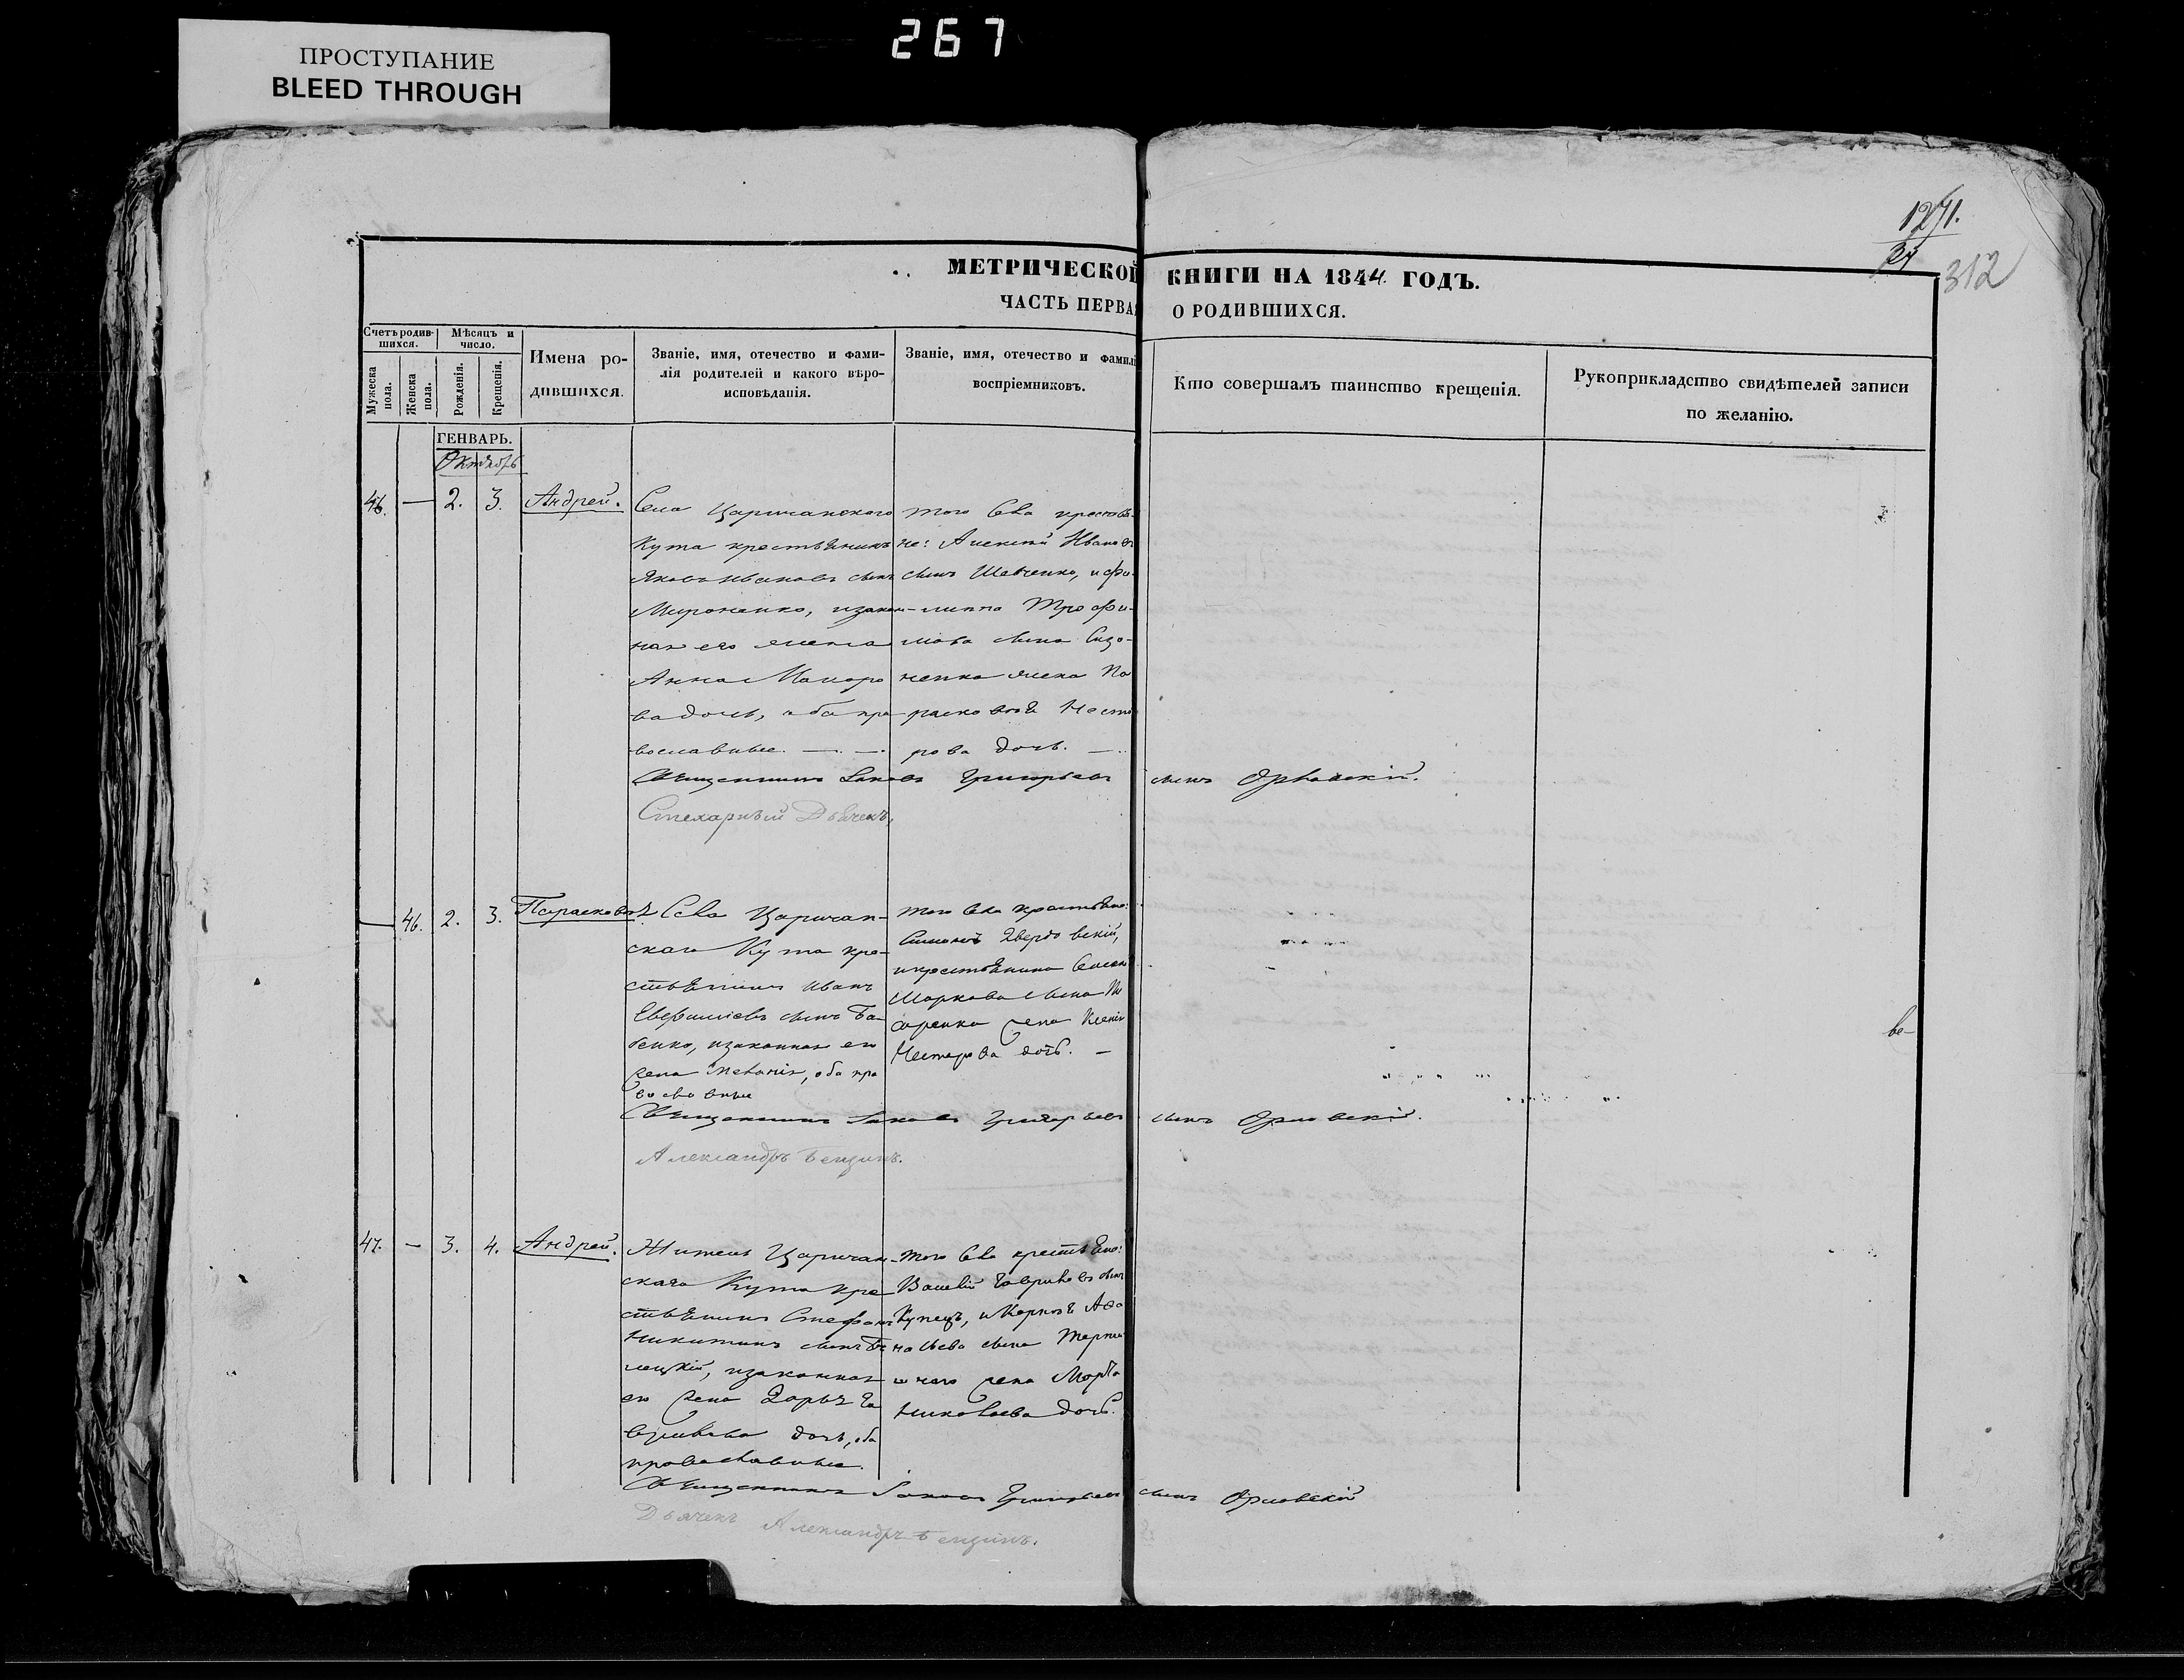 267
ПРОСТУПАНИЕ
BLEED THROUGH
1271.
24
312
МЕТРИЧЕСКОЙ КНИГИ НА 1844. ГОДЪ.
ЧАСТЬ ПЕРВАЯ О РОДИВШИХСЯ.
Счетъ родив-
шихся.
Мужеска
пола.
Женска
пола.
Мѣсяцъ и
число.
Рожденія.
Крещенія.
Имена ро-
дившихся.
Званіе, имя, отечество и фами-
лія родителей и какого вѣро-
исповѣданія.
Званіе, имя, отечество и фамилі
воспріемниковъ.
Кто совершалъ таинство крещенія.
Рукоприкладство свидѣтелей записи
по желанію.
ГЕНВАРЬ.
Октябрь
46. — 2. 3. Андрей.
Села Царичанского
Кута крестьянинъ
Яковъ Ивановъ сынъ
Мироненко, изакон-
ная его жена
Анна Макаро
ва дочь, оба пра
вославные. — —
того села крестья-
не: Алексѣй Ивановъ
сынъ Шевченко, и Фи-
липпа Трофи-
мова сына Сизо-
ненка жена Па
расковѣя Несто
рова дочь. —
Священникъ Іаковъ Григорьевъ сынъ Орловскій.
Стихарный Дьячекъ,
— 46. 2. 3. Парасковѣя
Села Царичан-
скаго Кута кре-
стьянинъ Иванъ
Евфиміевъ сынъ Ба-
бенко, изаконная его
жена Меланія, оба пра
вославные
того села крестьяне:
Симеонъ Твердовскій,
и крестьянина
Маркова сына
жена Ксенія
Нестерова дочь. —
ве-
Священникъ Іаковъ Григорьевъ сынъ Орловскій.
Александръ Бенzинъ.
47. — 3. 4. Андрей.
Житель Царичан-
скаго Кута кре
стьянинъ Стефанъ
Никитинъ сынъ Бѣ
лецкій, изаконная
его жена Дарья Га
врилова дочь, оба
православные.
того села крестьяне:
Василій Гавриловъ сынъ
Купецъ, и Карпа Афа
насьева сына
жена Марѳа
Николаева дочь.
Священникъ Іаковъ Григорьевъ сынъ Орловскій
Дьячекъ Александръ